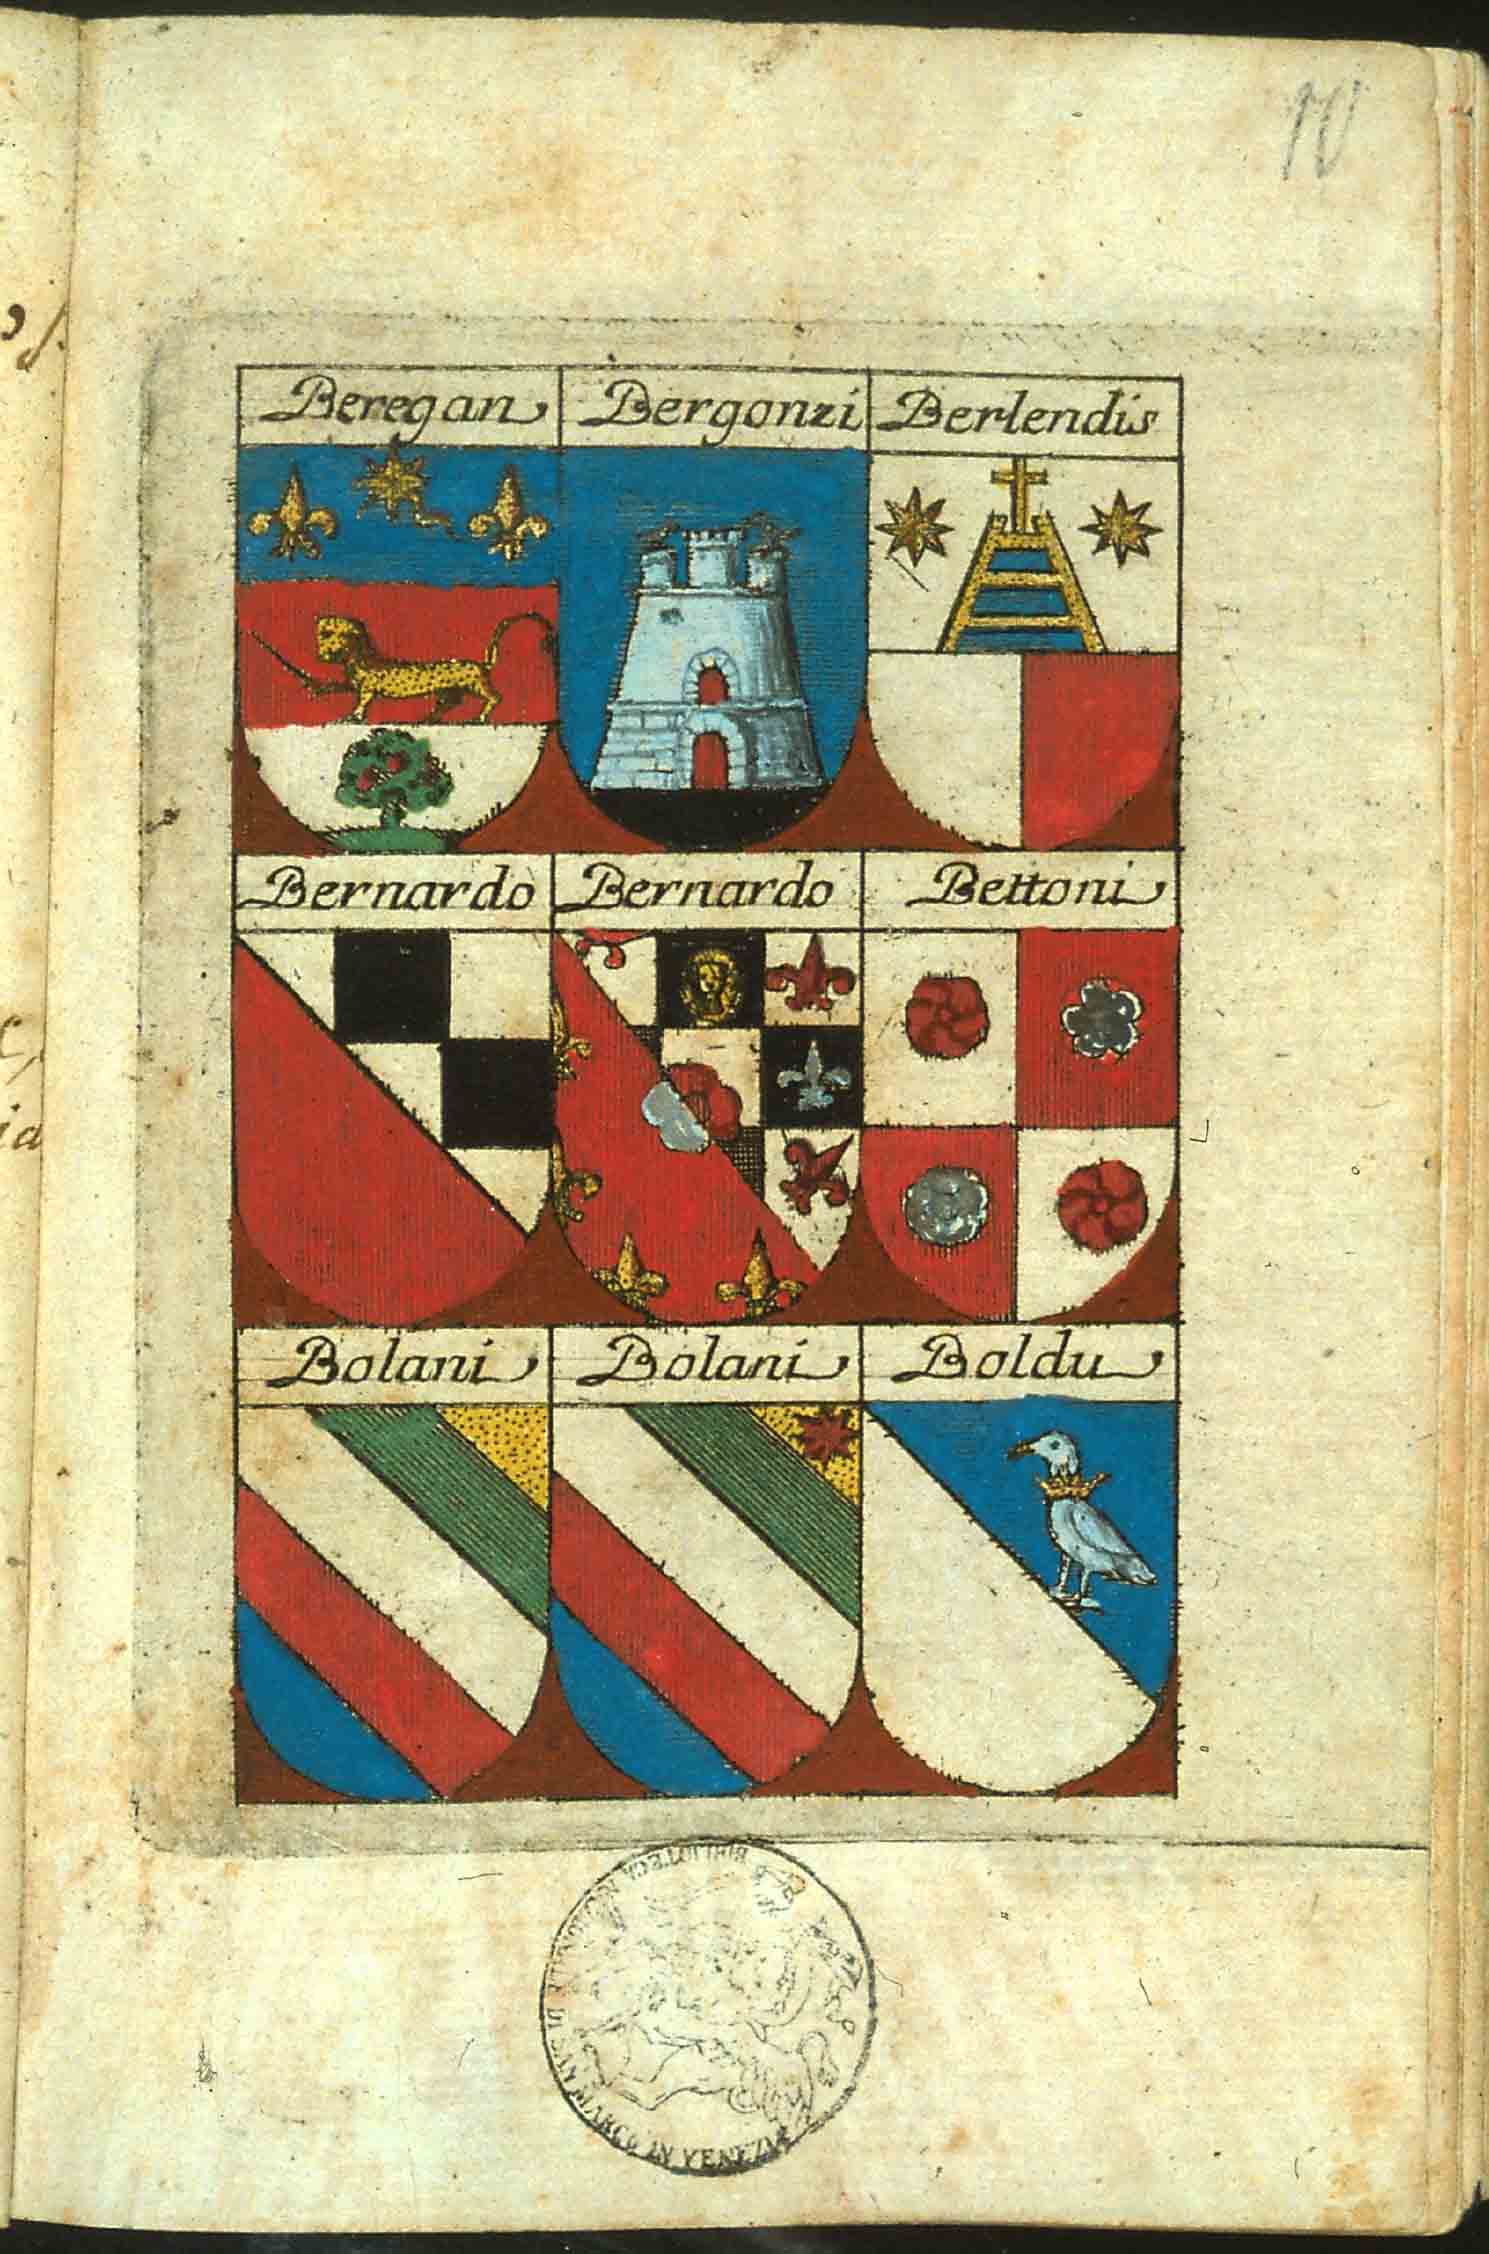 10
Beregan Bergonzi Berlendis
Bernardo Bernardo Bettoni
Bolani Bolani Boldu
BIBLIOTECA NAZIONALE DI S. MARCO IN VENEZIA